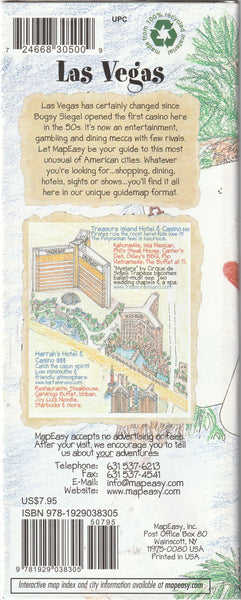 7 24668 30500 9
UPC
made from 100% recycled materials
Las Vegas
Las Vegas has certainly changed since
Bugsy Siegel opened the first casino here
in the 50s. It's now an entertainment,
gambling and dining mecca with few rivals.
Let MapEasy be your guide to this most
unusual of American cities. Whatever
you're looking for...shopping, dining,
hotels, sights or shows... you'll find it all
here in our unique guidemap format.
Treasure Island Hotel & Casino $$$
Pirates rule the roost here! Kids love it!
The Polynesian feel is luxurious.
Kahunaville, Isla Mexican,
Phil's Steak House, Canter's
Deli, Olley's BBQ, Pho
Vietnamese, The Buffet at TI.
"Mystère" by Cirque de
Soleil! Trapeze becomes
ballet—must see. Two
wedding chapels & a spa.
Harrah's Hotel &
Casino $$$
Catch the cajun spirit!
Low minimums &
friendly atmosphere.
Restaurants: Steakhouse,
Carvings Buffet, Ichiban,
Joy Luck Noodle,
Starbucks & more.
MapEasy accepts no advertising or fees.
After your visit, we encourage you to tell
us about your adventures:
Telephone: 631 537-6213
Fax: 631 537-4541
E-Mail: info@mapeasy.com
Website: www.mapeasy.com
US$7.95
ISBN 978-1929038305
50795
9 781929 038305
MapEasy, Inc.
Post Office Box 80
Wainscott, NY
11975-0080 USA
Printed in USA
Interactive map index and city information available at mapeasy.com